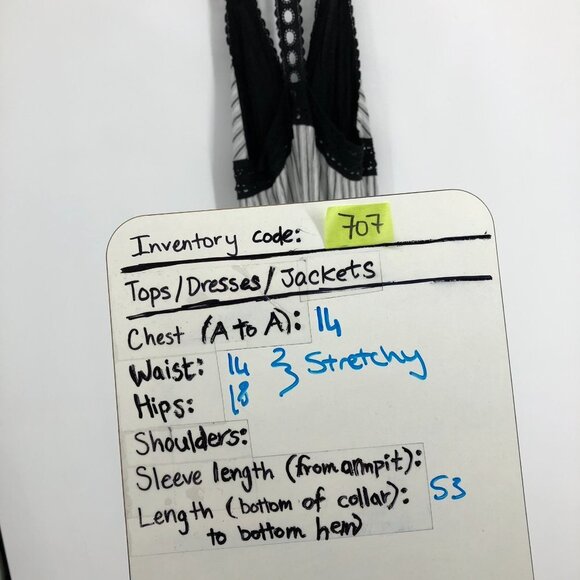 Inventory code: 707
Tops/Dresses/Jackets
Chest (A to A): 14
Waist: 14 } Stretchy
Hips: 18
Shoulders:
Sleeve length (from armpit):
Length (bottom of collar): 53
to bottom hem)